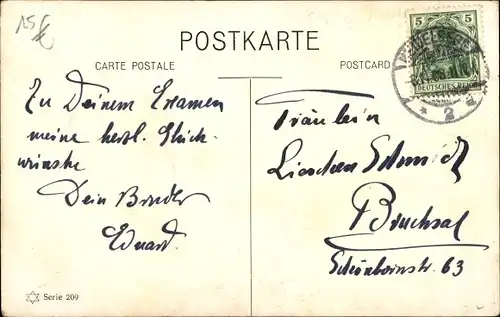 POSTKARTE
CARTE POSTALE
POSTCARD
5 5
DEUTSCHES REICH
* 2 a
Zu Deinem Examen
meine herzl. Glück-
wünsche
Dein Bruder
Eduard.
Fräulein
Lieschen Schmidt
Bruchsal
Schönbornstr. 63
Serie 209